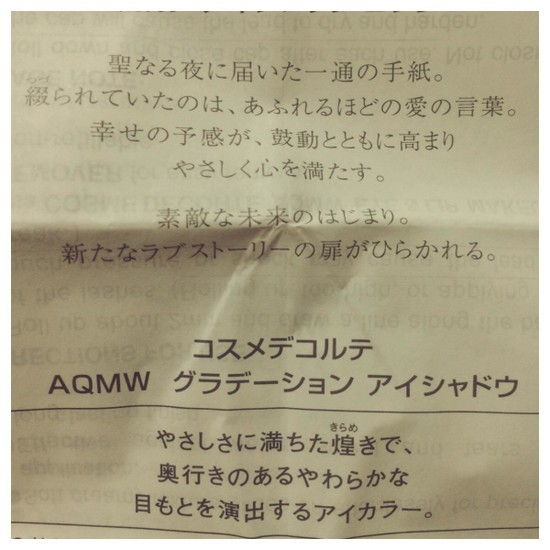 聖なる夜に届いた一通の手紙。
綴られていたのは、あふれるほどの愛の言葉。
幸せの予感が、鼓動とともに高まり
やさしく心を満たす。
素敵な未来のはじまり。
新たなラブストーリーの扉がひらかれる。
コスメデコルテ
AQMW グラデーション アイシャドウ
きらめ
やさしさに満ちた煌きで、
奥行きのあるやわらかな
目もとを演出するアイカラー。